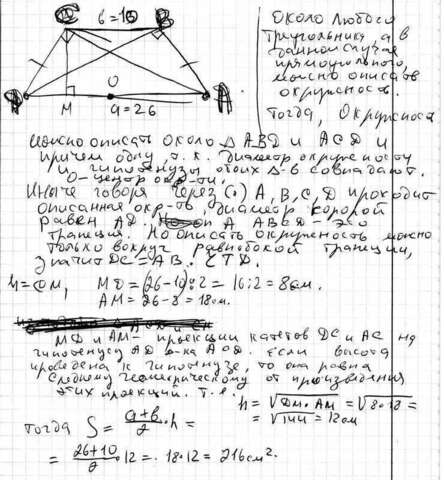 C b=10 B
O
M a=26 A
Около любого
треугольника, а в
данном случае
прямоугольного,
можно описать
окружность.
Тогда, окружность
можно описать около Δ ABD и ACD и
причем одну, т.к. диаметр окружности
и гипотенузы этих Δ-в совпадают.
O-центр окр-ти.
Иначе говоря через (·) A, B, C, D проходит
описанная окр-ть, диаметр которой
равен AD. А ABCD - это
трапеция. Но описать окружность можно
только вокруг равнобокой трапеции,
значит DC=AB. ЧТД.
h=CM, MD=(26-10):2=16:2=8см.
AM=26-8=18см.
MD и AM- проекции катетов DC и AC на
гипотенузу AD Δ-ка ACD. Если высота
проведена к гипотенузе, то она равна
среднему геометрическому от произведения
этих проекций. т.е.
h=√DM·AM=√8·18=
=√144=12см
тогда S=(a+b)/2·h=
=(26+10)/2·12=18·12=216см².